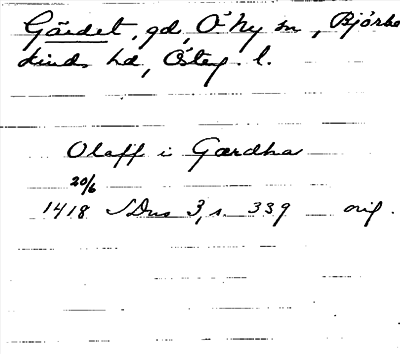 Gärdet, gd, Ö Ny sn, Björke
kinds hd, Östeg. l.
Olaff i Gærdha
20/6
1418 SDns 3, s. 339 orig.